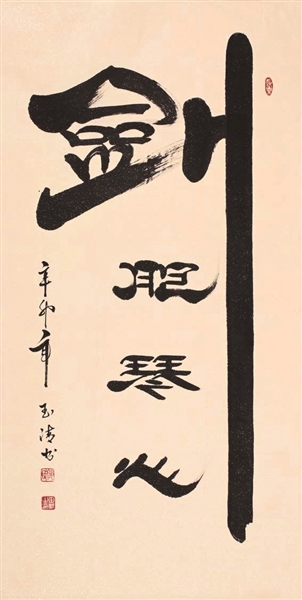 劍胆琴心
辛卯年
玉清书